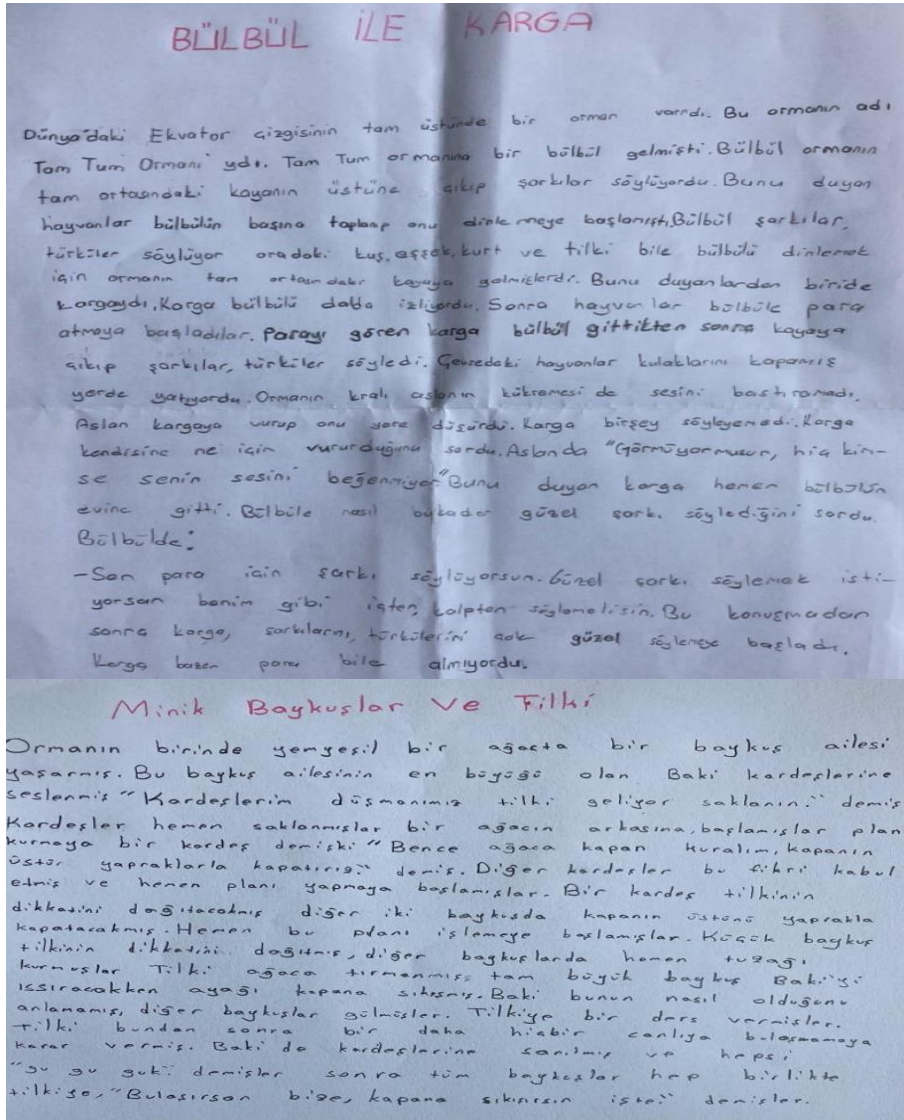 BÜLBÜL İLE KARGA
Dünya'daki Ekvator çizgisinin tam üstünde bir orman varndı. Bu ormanın adı
Tam Tum Ormanı'ydı. Tam Tum ormanına bir bülbül gelmişti. Bülbül ormanın
tam ortasındaki kayanın üstüne çıkıp şarkılar söylüyordu. Bunu duyan
hayvanlar bülbülün başına toplanıp onu dinlemeye başlamıştı. Bülbül şarkılar,
türküler söylüyor oradaki kuş, eşşek, kurt ve tilki bile bülbülü dinlemek
için ormanın tam ortasındaki kayaya gelmişlerdi. Bunu duyanlardan biride
kargaydı. Karga bülbülü dalda izliyordu. Sonra hayvanlar bülbüle para
atmaya başladılar. Parayı gören karga bülbül gittikten sonra kayaya
çıkıp şarkılar, türküler söyledi. Çevredeki hayvanlar kulaklarını kapamış
yerde yatıyordu. Ormanın kralı aslanın kükremesi de sesini bastıramadı.
Aslan kargaya vurup onu yere düşürdü. Karga birşey söyleyemedi. Karga
kendisine ne için vururduğunu sordu. Aslanda "Görmüyormusun, hiç kim-
se senin sesini beğenmiyor" Bunu duyan karga hemen bülbülün
evine gitti. Bülbüle nasıl bukadar güzel şarkı söylediğini sordu.
Bülbülde:
-Sen para için şarkı söylüyorsun. Güzel şarkı söylemek isti-
yorsan benim gibi içten, kalpten söylemelisin. Bu konuşmadan
sonra karga, şarkılarını, türkülerini çok güzel söylemeye başladı.
Karga bazen para bile almıyordu.
Minik Baykuşlar Ve Tilki
Ormanın birinde yemyeşil bir ağaçta bir baykuş ailesi
yaşarmış. Bu baykuş ailesinin en büyüğü olan Baki kardeşlerine
seslenmiş "Kardeşlerim düşmanımız tilki geliyor saklanın." demiş
Kardeşler hemen saklanmışlar bir ağacın arkasına, başlamışlar plan
kurmaya bir kardeş demişki "Bence ağaca kapan kuralım, kapanın
üstünü yapraklarla kapatırız." demiş. Diğer kardeşler bu fikri kabul
etmiş ve hemen planı yapmaya başlamışlar. Bir kardeş tilkinin
dikkatini dağıtacakmış diğer iki baykuşda kapanın üstünü yaprakla
kapatacakmış. Hemen bu planı işlemeye başlamışlar. Küçük baykuş
tilkinin dikkatini dağıtmış, diğer baykuşlarda hemen tuzağı
kurmuşlar Tilki ağaca tırmanmış, tam büyük baykuş Baki'yi
ıssıracakken ayağı kapana sıkışmış. Baki bunun nasıl olduğunu
anlamamış, diğer baykuşlar gülmüşler. Tilkiye bir ders vermişler.
Tilki bundan sonra bir daha hiçbir canlıya bulaşmamaya
karar vermiş. Baki de kardeşlerine sarılmış ve hepsi
"gu gu guk" demişler sonra tüm baykuşlar hep birlikte
tilkiye, "Bulaşırsan bize, kapana sıkışırsın işte." demişler.